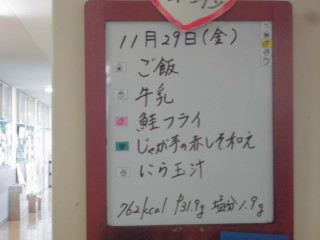 11月29日(金)
ご飯
牛乳
鮭フライ
じゃが芋の赤しそ和え
にら玉汁
762kcal 31.9g 塩分1.9g